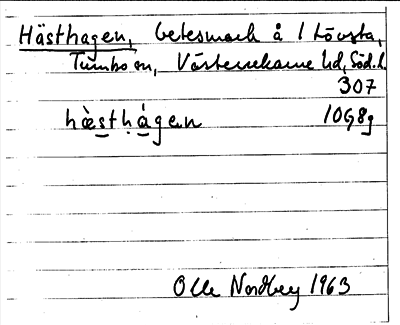 Hästhagen, betesmark å 1 Lövsta,
Tumbo sn, Västerrekarne hd, Söd. l.
307
hæ̀sthágen 10G8g
Olle Nordberg 1963